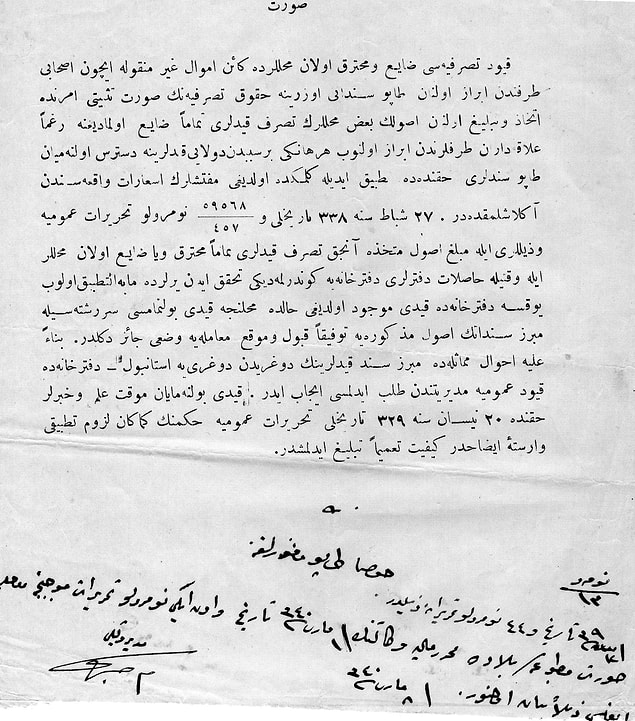 صورت
قیود تصرفیه‌سی ضایع و محترق اولان محللرده كائن اموال غیر منقوله ایچون اصحابی
طرفندن ابراز اولنان طاپو سنداتی اوزرینه حقوق تصرفیه‌نك صورت تثبیتی امرنده
اتخاذ و تبلیغ اولنان اصولك بعض محللرك تصرف قیدلری تماماً ضایع اولمادیغنه رغماً
علاقه‌داران طرفلرندن ابراز اولنوب هر هانكی بر سببدن دولایی قیدلرینه دسترس اولنه‌میان
طاپو سندلری حقنده‌ده تطبیق ایدیله كلمكده اولدیغی مفتشلرك اشعارات واقعه‌سندن
آكلاشلمقده‌در . ۲۷ شباط سنه ۳۳۸ تاریخلی و ۵۹۵۶۸/۴۵۷ نومرولو تحریرات عمومیه
و ذیللری ایله مبلغ اصول متخذه آنجق تصرف قیدلری تماماً محترق ویا ضایع اولان محللر
ایله وقتیله حاصلات دفترلری دفترخانه‌یه كوندرلمه‌دیكی تحقق ایدن یرلرده مابه‌التطبیق اولوب
یوقسه دفترخانه‌ده قیدی موجود اولدیغی حالده محلنجه قیدی بولنمامسی سررشته‌سیله
مبرز سنداتك اصول مذكوره‌یه توفیقاً قبول و موقع معامله‌یه وضعی جائز دكلدر. بناءً
علیه احوال مماثله‌ده مبرز سند قیدلرینك دوغریدن دوغری‌یه استانبول ـ دفترخانه‌ده
قیود عمومیه مدیریتندن طلب ایدلمسی ایجاب ایدر . قیدی بولنه‌مایان موقت علم و خبرلر
حقنده ۲۰ نیسان سنه ۳۲۹ تاریخلی تحریرات عمومیه حكمنك كماكان لزوم تطبیقی
وارستهٔ ایضاحدر كیفیت تعمیماً تبلیغ ایدلمشدر.
طاپو
نومرو
۱۳
تاریخ و ۴۴ نومرولو تحریراته ذیلدر.
صورت مطبوع بالاده محرر مارت ۳۴۰ تاریخ و اون ایكی نومرولو تحریرات موجبنجه
ذیلاً بیان اولنور. ۸ مارت ۳۴۰
مدیر وكیلی